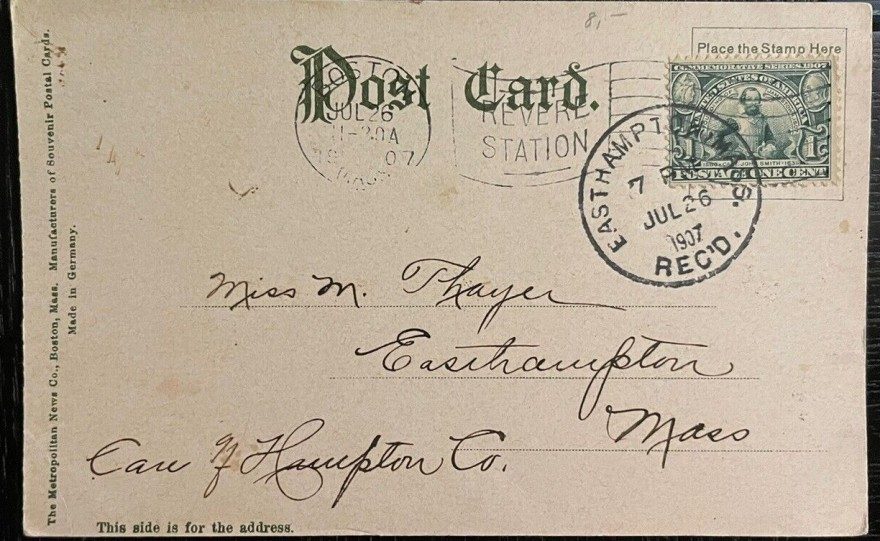 8,-
Post Card.
Place the Stamp Here
BOSTON
JUL 26
11-30A
1907
MASS
REVERE
STATION
COMMEMORATIVE SERIES 1907
UNITED STATES OF AMERICA
1580 CAPT. JOHN SMITH 1631
1 POSTAGE ONE CENT 1
EASTHAMPTON, MASS.
7 P
JUL 26
1907
REC'D.
Miss M. Thayer
Easthampton
Mass
Care of Hampton Co.
This side is for the address.
The Metropolitan News Co., Boston, Mass. Manufacturers of Souvenir Postal Cards.
Made in Germany.